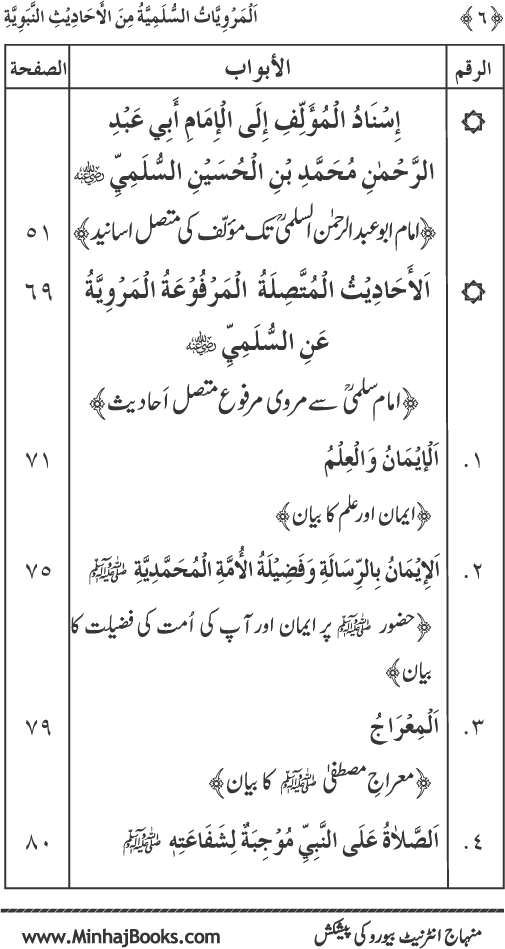 ﴿٦﴾ اَلْمَرْوِيَّاتُ السُّلَمِيَّةُ مِنَ الْأَحَادِيْثِ النَّبَوِيَّةِ
الرقم الأبواب الصفحة
۞ إِسْنَادُ الْمُؤَلِّفِ إِلَى الْإِمَامِ أَبِي عَبْدِ
الرَّحْمٰنِ مُحَمَّدِ بْنِ الْحُسَيْنِ السُّلَمِيِّ رضی اللہ عنہ
﴿امام ابو عبد الرحمٰن السلمیؒ تک مؤلّف کی متصل اسانید﴾ ٥١
۞ اَلْأَحَادِيْثُ الْمُتَّصِلَةُ الْمَرْفُوْعَةُ الْمَرْوِيَّةُ ٦٩
عَنِ السُّلَمِيِّ رضی اللہ عنہ
﴿امام سلمیؒ سے مروی مرفوع متصل اَحادیث﴾
١. اَلْإِيْمَانُ وَالْعِلْمُ ٧١
﴿ایمان اور علم کا بیان﴾
٢. اَلْإِيْمَانُ بِالرِّسَالَةِ وَفَضِيْلَةُ الْأُمَّةِ الْمُحَمَّدِيَّةِ ﷺ ٧٥
﴿حضور ﷺ پر ایمان اور آپ کی اُمت کی فضیلت کا
بیان﴾
٣. اَلْمِعْرَاجُ ٧٩
﴿معراجِ مصطفیٰ ﷺ کا بیان﴾
٤. اَلصَّلَاةُ عَلَى النَّبِيِّ مُوْجِبَةٌ لِشَفَاعَتِهِ ﷺ ٨٠
منہاج انٹرنیٹ بیورو کی پیشکش www.MinhajBooks.com